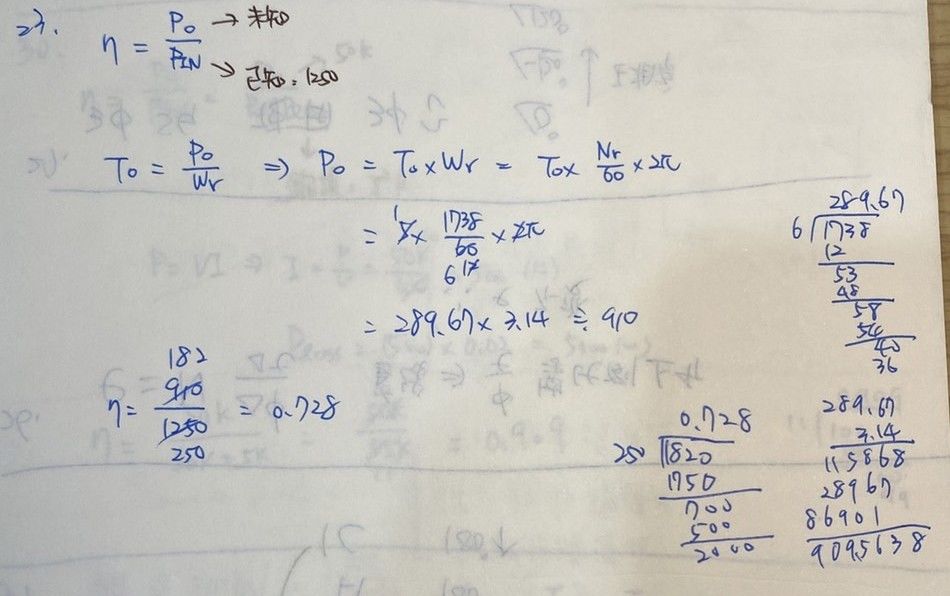 23.
η = Po/PIN → 未知
→ 已知：1250
To = Po/Wr ⇒ Po = To × Wr = To × Nr/60 × 2π
= 5 × 1738/60 × 2π
1
6 12
= 289.67 × 3.14 ≒ 910
182
η = 910/1250 = 0.728
250
289.67
6 ) 1738
12
53
48
58
54
40
36
0.728
250 ) 1820
1750
700
500
2000
289.67
3.14
115868
28967
86901
909.5638